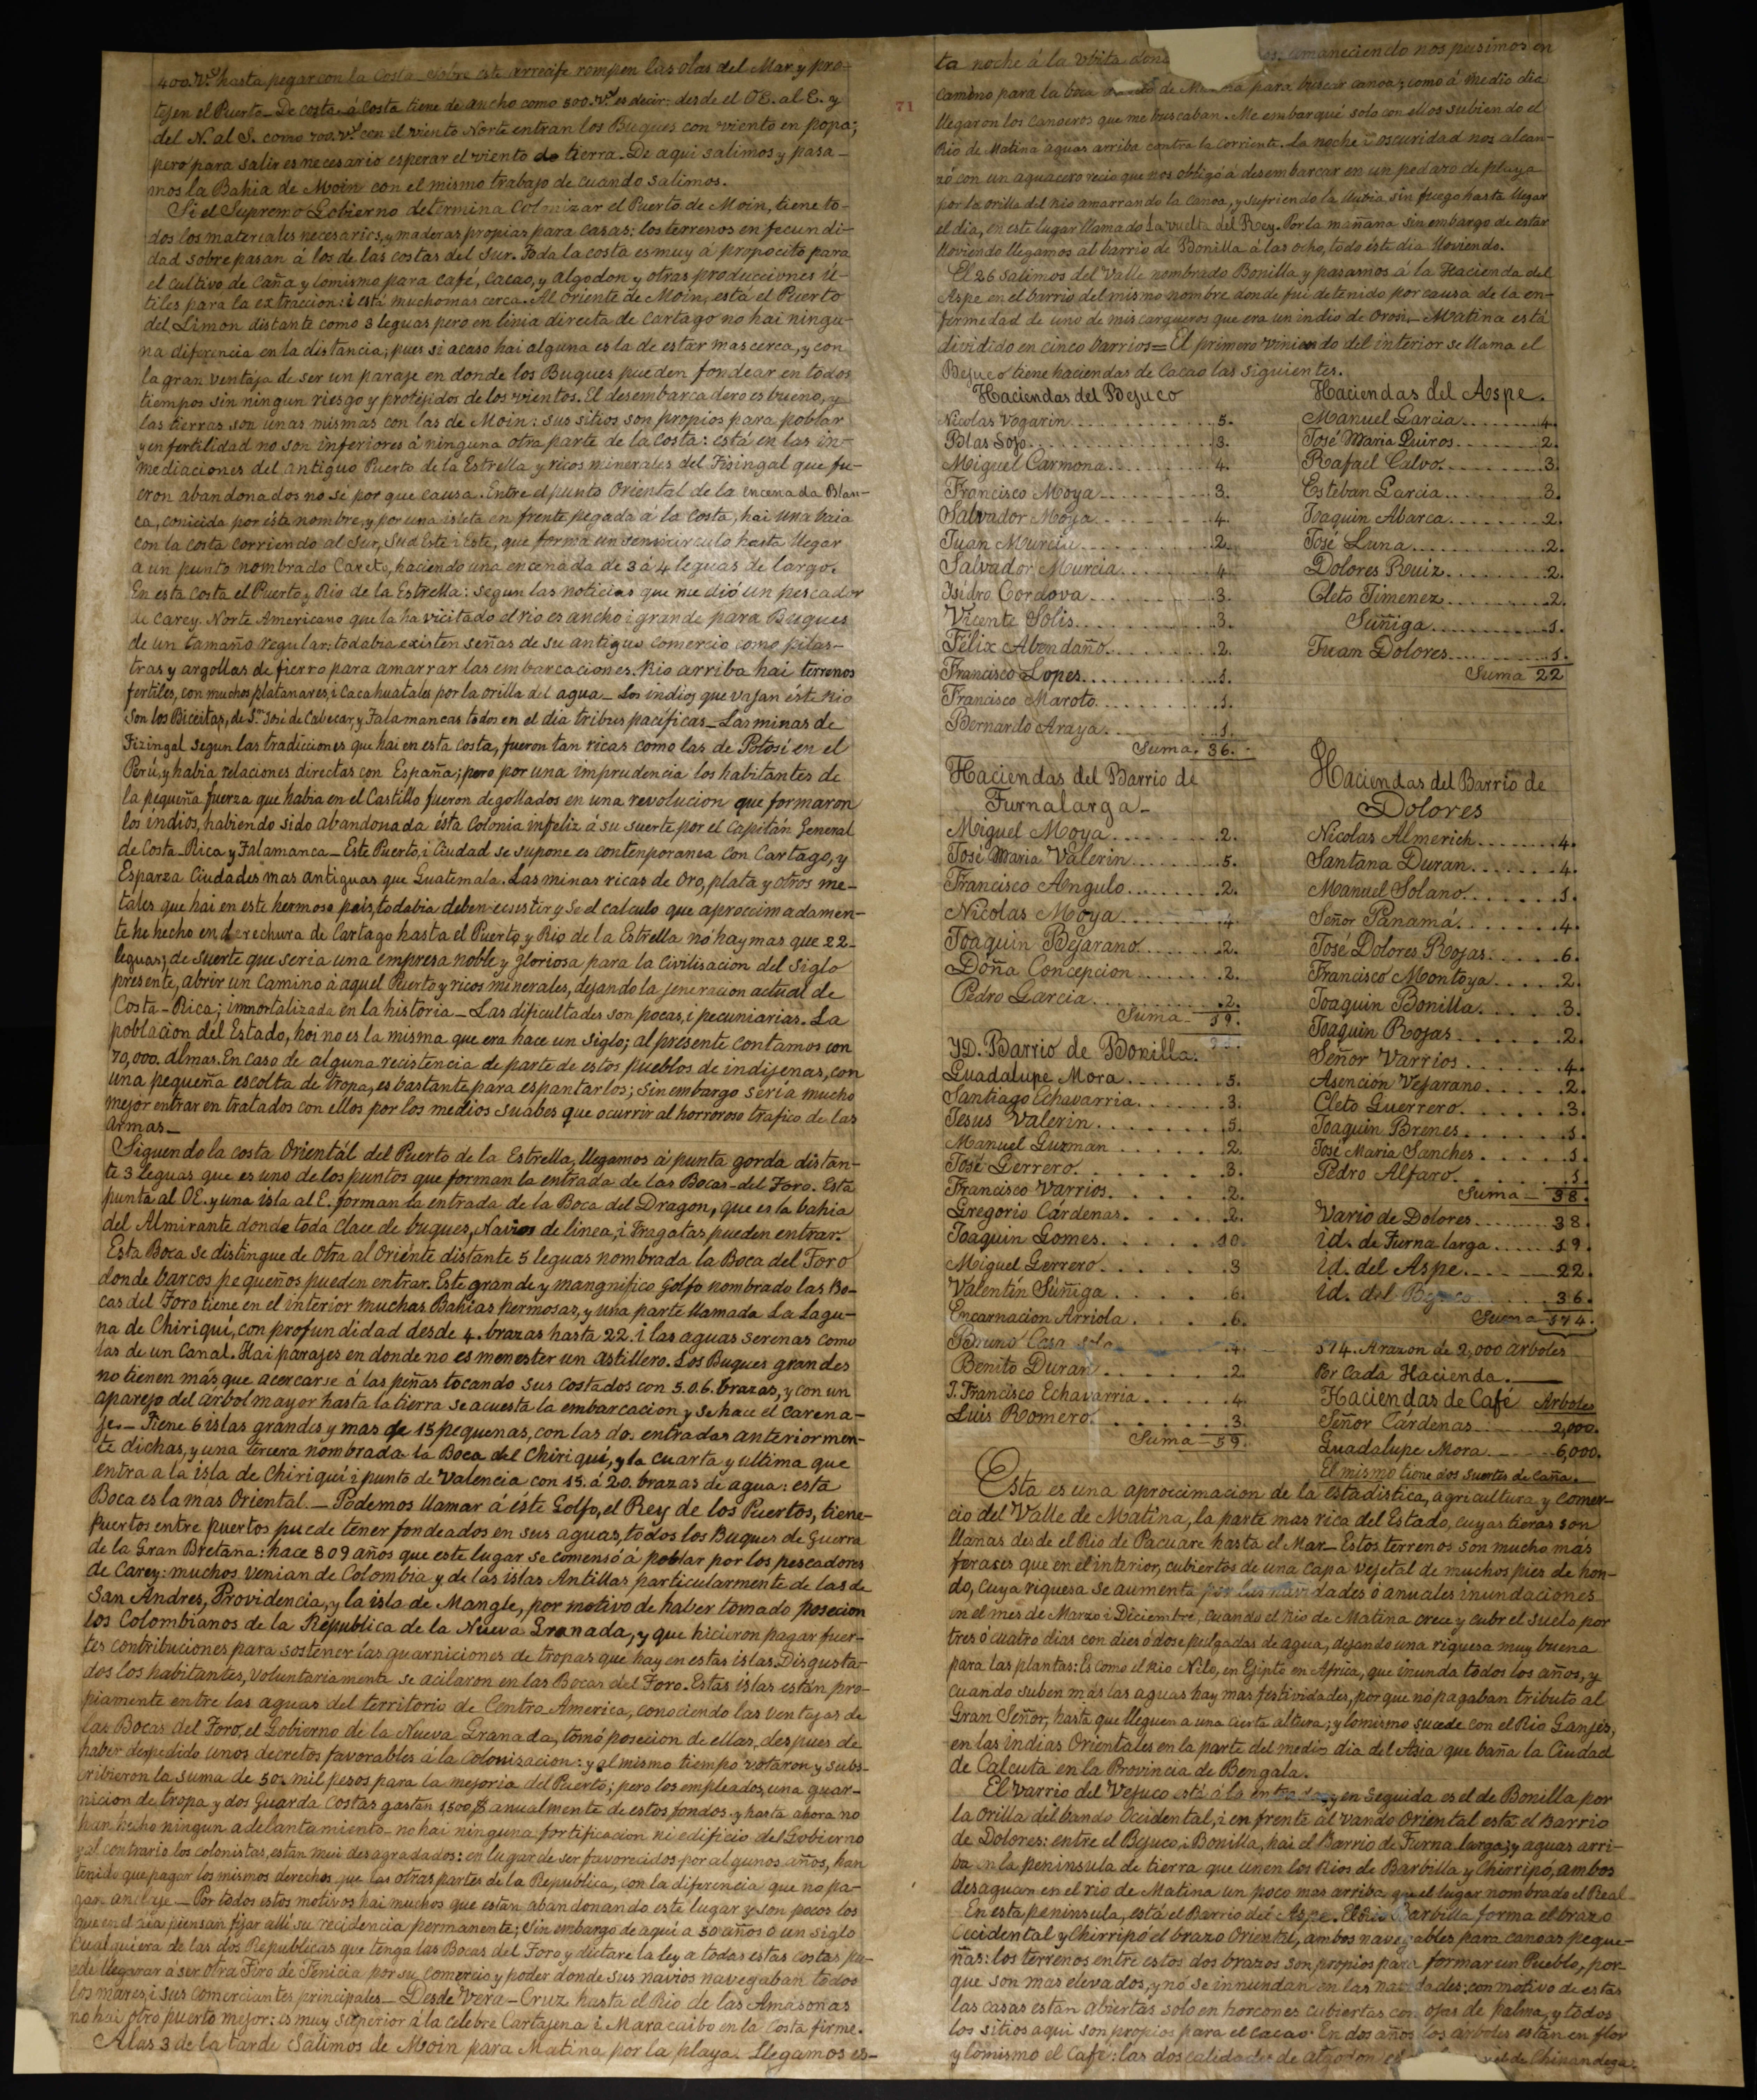 400. V.s hasta pegar con la Costa sobre este arrecife rompen las olas del Mar y pro-
tejen el Puerto_ De costa á Costa tiene de ancho como 500. V.s es decir: desde el OE. al E. y
del N. al S. como 700. V.s con el viento Norte entran los Buques con viento en popa;
pero para salir es necesario esperar el viento de tierra. De aqui salimos y pasa-
mos la Bahia de Moin con el mismo trabajo de cuando salimos.
Si el Supremo Gobierno determina Colonizar el Puerto de Moin, tiene to-
dos los materiales necesarios, y maderas propias para casas: los terrenos en fecundi-
dad sobre pasan á los de las costas del Sur. Toda la costa es muy á propocito para
el cultivo de Caña y lomismo para café, Cacao, y algodon y otras producciones ú-
tiles para la extraccion: i está muchomas cerca. Al oriente de Moin, está el Puerto
del Limon distante como 3 leguas pero en linia directa de Cartago no hai ningu-
na diferencia en la distancia; pues si acaso hai alguna es la de estar mas cerca, y con
la gran ventaja de ser un paraje en donde los Buques pueden fondear en todos
tiempos sin ningun riesgo y protejidos de los vientos. El desembarcadero es bueno, y
las tierras son unas mismas con las de Moin: sus sitios son propios para poblar
y en fertilidad no son inferiores á ninguna otra parte de la costa: está en las in-
mediaciones del antiguo Puerto de la Estrella y ricos minerales del Tisingal que fu-
eron abandonados no sé por que causa. Entre el punto Oriental de la encenada Blan-
ca, conicida por ésta nombre, y por una isleta en frente pegada á la Costa, hai una baia
con la costa corriendo al Sur, Sud Este i Este, que forma un semicirculo hasta llegar
a un punto nombrado Careto, haciendo una encenada de 3 á 4 leguas de largo.
En esta Costa el Puerto y Rio de la Estrella: segun las noticias que me dió un pescador
de Carey Norte Americano que la ha vicitado el rio es ancho i grande para Buques
de un tamaño regular: todabia existen señas de su antiguo comercio como pilas-
tras y argollas de fierro para amarrar las embarcaciones. Rio arriba hai terrenos
fertiles, con muchos platanares, i cacahuatales por la orilla del agua_ Los indios que vajan ést. Rio
son los Biceitas, de S.n José de Cabecar, y Talamancas todos en el dia tribus pacíficas_ Las minas de
Tizingal segun las tradiciones que hai en esta costa, fueron tan ricas como las de Potosí en el
Perú, y habia relaciones directas con España; pero por una imprudencia los habitantes de
la pequeña fuerza que habia en el Castillo fueron degollados en una revolucion que formaron
los indios, habiendo sido abandonada ésta Colonia infeliz á su suerte por el Capitán General
de Costa-Rica y Talamanca_ Este Puerto, i Ciudad se supone es contemporanea con Cartago, y
Esparza Ciudades mas antiguas que Guatemala. Las minas ricas de Oro, plata y otros me-
tales que hai en este hermoso pais, todabia deben ecsestir y se el calculo que aproccimadamen-
te he hecho en derechura de Cartago hasta el Puerto y Rio de la Estrella nó hay mas que 22-
leguas; de suerte que seria una empresa noble y gloriosa para la Civilisacion del Siglo
presente, abrir un camino á aquel Puerto y ricos minerales, dejando la jeneracion actual de
Costa-Rica; inmortalizada en la historia_ Las dificultades son pocas, i pecuniarias. La
poblacion del Estado, hoi no es la misma que era hace un siglo; al presente contamos con
70,000. almas. En caso de alguna recistencia de parte de estos pueblos de indijenas, con
una pequeña escolta de tropa, es bastante para espantarlos; sin embargo sería mucho
mejor entrar en tratados con ellos por los medios suabes que ocurrir al horroroso trafico de las
armas_
Siguendo la costa Orientál del Puerto de la Estrella, llegamos á punta gorda distan-
te 3 leguas que es uno de los puntos que forman la entrada de las Bocas-del Toro. Esta
punta al OE. y una isla al E. forman la entrada de la Boca del Dragon, que es la bahia
del Almirante donde toda clace de buques, Navios de linea, i Fragatas, pueden entrar.
Esta Boca se distingue de otra al Oriente distante 5 leguas nombrada la Boca del Toro
donde barcos pequeños pueden entrar. Este grande y mangnifico Golfo nombrado las Bo-
cas del Toro tiene en el interior muchas Bahias hermosas, y una parte llamada La Lagu-
na de Chiriquí, con profundidad desde 4. brazas hasta 22. i las aguas serenas como
las de un Canal. Hai parajes en donde no es menester un astillero. Los Buques grandes
no tienen más que acercarse á las peñas tocando sus costados con 5.0.6. brazas, y con un
aparejo del árbol mayor hasta la tierra se acuesta la embarcacion y se hace el carena-
je._ Tiene 6 islas grandes y mas de 15 pequeñas, con las dos entradas anteriormen-
te dichas, y una tercera nombrada la Boca del Chiriquí, y la cuarta y ultima que
entra a la isla de Chiriquí i punto de Valencia con 15. á 20. brazas de agua: esta
Boca es la más Oriental._ Podemos llamar á éste Golfo, el Rey de los Puertos, tiene-
puertos entre puertos puede tener fondeados en sus aguas, todos los Buques de Guerra
de la Gran Bretaña: hace 8 0 9 años que este lugar se comensó á poblar por los pescadores
de Carey: muchos venian de Colombia y de las islas Antillas particularmente de las de
San Andres, Providencia, y la isla de Mangle, por motivo de haber tomado posecion
los Colombianos de la Republica de la Nueva Granada, y que hicieron pagar fuer-
tes contribuciones para sostener las guarniciones de tropas que hay en estas islas. Disgusta-
dos los habitantes, voluntariamente se acilaron en las Bocas del Toro. Estas islas están pro-
piamente entre las aguas del territorio de Centro America, conociendo las ventajas de
las Bocas del Toro, el Gobierno de la Nueva Granada, tomó posecion de ellas, despues de
haber despedido unos decretos favorables á la Colonisacion: y al mismo tiempo votaron y subs-
cribieron la suma de 50. mil pesos para la mejoria del Puerto; pero los empleados, una guar-
nicion de tropa y dos Guarda Costas gastan 1500 $ anualmente de estos fondos y hasta ahora no
han hecho ningun adelantamiento_ no hai ninguna fortificacion ni edificio del Gobierno
y al contrario los colonistas, estan mui desagradados: en lugar de ser favorecidos por algunos años, han
tenido que pagar los mismos derechos que las otras partes de la Republica, con la diferencia que no pa-
gan anclaje_ Por todos estos motivos hai muchos que estan abandonando este lugar y son pocos los
que en el dia, piensan fijar allí su recidencia permanente; Sin embargo de aquí a 50 años ó un siglo
cualquiera de las dos Republicas que tenga las Bocas del Toro y dictare la ley a todas estas costas pu-
ede llegarar a ser otra Tiro de Fenicia por su comercio y poder donde sus navios navegaban todos
los mares, i sus comerciantes principales_ Desde Vera-Cruz hasta el Rio de las Amasonas
no hai otro puerto mejor: es muy superior a la celebre Cartajena i Maracaibo en la Costa firme.
A las 3 de la tarde Salimos de Moin para Matina por la playa. Llegamos es-
71
ta noche á la vbita dond amaneciendo nos pusimos en
camino para la boca de para buscar canoa; como á medio dia
llegaron los Canoeros que me buscaban. Me embarqué solo con ellos subiendo el
Rio de Matina aguas arriba contra la corriente. La noche i oscuridad nos alcan-
zó con un aguacero recio que nos obligó á desembarcar en un pedazo de playa
por la orilla del rio amarrando la canoa, y sufriendo la lluvia sin fuego hasta llegar
el dia, en este lugar llamado La vuelta del Rey. Por la mañana sin embargo de estar
lloviendo llegamos al barrio de Bonilla á las ocho, todo éste dia lloviendo.
El 26 salimos del Valle nombrado Bonilla y pasamos á la Hacienda del
Aspe en el barrio del mismo nombre donde fui detenido por causa de la en-
fermedad de uno de mis cargueros que era un indio de Orosi._ Matina está
dividido en cinco barrios= El primero viniendo del interior se llama el
Bejuco tiene haciendas de Cacao las siguientes.
Haciendas del Bejuco
Nicolas Vogarin 5.
Blas Sojo 3.
Miguel Carmona 4.
Francisco Moya 3.
Salvador Moya 4.
Juan Murcia 2.
Salvador Murcia 4.
Isidro Cordova 3.
Vicente Solis 3.
Félix Abendaño 2.
Francisco Lopes 1.
Francisco Maroto 1.
Bernardo Araya 1.
Suma. 36.
Haciendas del Aspe.
Manuel Garcia 4.
José Maria Quiros 2.
Rafael Calvo 3.
Esteban Garcia 3.
Joaquin Abarca 2.
José Luna 2.
Dolores Ruiz 2.
Cleto Jimenez 2.
Suñiga 1.
Juan Dolores 1.
Suma 22
Haciendas del Barrio de
Furnalarga_
Miguel Moya 2.
José Maria Valerin 5.
Francisco Angulo 2.
Nicolas Moya 4.
Joaquin Bejarano 2.
Doña Concepcion 2.
Pedro Garcia 2.
Suma_ 19.
YD. Barrio de Bonilla.
Guadalupe Mora 5.
Santiago Echavarria 3.
Jesus Valerin 5.
Manuel Guzman 2.
José Gerrero 3.
Francisco Varrios 2.
Gregorio Cárdenas 2.
Joaquin Gomes 10.
Miguel Gerrero 3
Valentín Súñiga 6.
Encarnacion Arriola 6.
Bruno Casasola 4.
Benito Duran 2.
J. Francisco Echavarria 4.
Luis Romero 3.
Suma_ 59.
Haciendas del Barrio de
Dolores
Nicolas Almerich 4.
Santana Duran 4.
Manuel Solano 1.
Señor Panamá 4.
José Dolores Rojas 6.
Francisco Montoya 2.
Joaquin Bonilla 3.
Joaquin Rojas 2.
Señor Varrios 4.
Asencion Vejarano 2.
Cleto Guerrero 3.
Joaquin Brenes 1.
José Maria Sanches 1.
Pedro Alfaro 1.
Suma_ 38.
Vario de Dolores 38.
id. de Furna larga 19.
id. del Aspe 22.
id. del Bejuco 36.
Suma 174.
574. Arazon de 2,000 arboles
Por Cada Hacienda.
Haciendas de Café Arboles
Señor Cárdenas 2,000.
Guadalupe Mora 6,000.
El mismo tiene dos suertes de Caña.
Esta es una aproccimacion de la estadistica, agricultura y comer-
cio del Valle de Matina, la parte mas rica del Estado, cuyas tieras son
llañas desde el Rio de Pacuare hasta el Mar_ Estos terrenos son mucho mas
feraces que en el interior, cubiertos de una capa vejetal de muchos pies de hon-
do, cuya riquesa se aumenta por las navidades ó anuales inundaciones
en el mes de Marzo i Diciembre, cuando el Rio de Matina crece y cubre el suelo por
tres ó cuatro dias con dies ó dose pulgadas de agua, dejando una riquesa muy buena
para las plantas: Es como el Rio Nilo, en Ejipto en Africa, que inunda todos los años, y
cuando suben más las aguas hay mas festividades, por que nó pagaban tributo al
Gran Señor, hasta que lleguen a una cierta altura; y lomismo sucede con el Rio Ganjes,
en las indias Orientales en la parte del medio dia del Asia que baña la Ciudad
de Calcuta en la Provincia de Bengala.
El varrio del Vejuco está á la entrada, y en seguida es el de Bonilla por
la orilla del bando Occidental, i en frente al vando Oriental está el Barrio
de Dolores: entre el Bejuco i Bonilla, hai el Barrio de Furna larga; y aguas arri-
ba en la peninsula de tierra que unen los Rios de Barbilla y Chirripó, ambos
desaguan en el rio de Matina un poco mas arriba que el lugar nombrado el Real
En esta peninsula, está el Barrio del Aspe. El Rio Barbilla forma el brazo
Occidental y Chirripó el brazo Oriental, ambos navegables para canoas peque-
ñas: los terrenos entre estos dos brazos son propios para formar un Pueblo, por-
que son mas elevados, y nó se innundan en las navidades: con motivo de estas
las casas están abiertas solo en horcones cubiertas con ojas de palma, y todos
los sitios aqui son propios para el Cacao. En dos años los árboles están en flor
y lomismo el Café: las dos calidades de algodon de Chinandega.